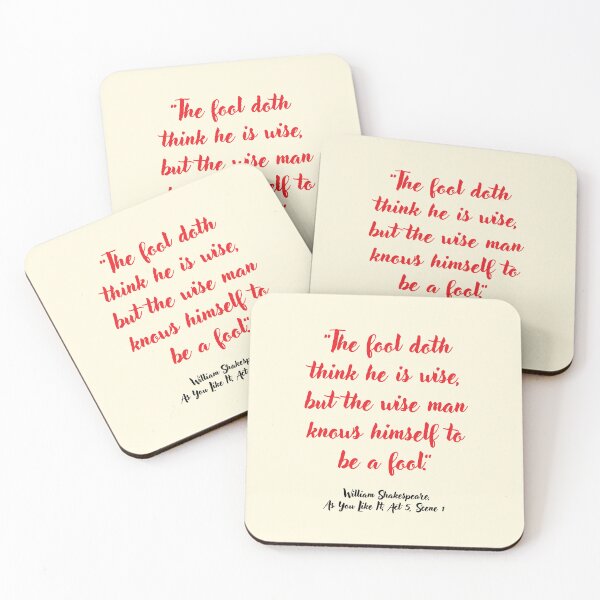 “The fool doth
think he is wise,
but the wise man
to
“The fool doth
think he is wise,
but the wise man
knows himself to
be a fool.“
“The fool doth
think he is wise,
but the wise man
knows himself to
be a fool.“
William
As You Like It, Act
“The fool doth
think he is wise,
but the wise man
knows himself to
be a fool.“
William Shakespeare,
As You Like It, Act 5, Scene 1